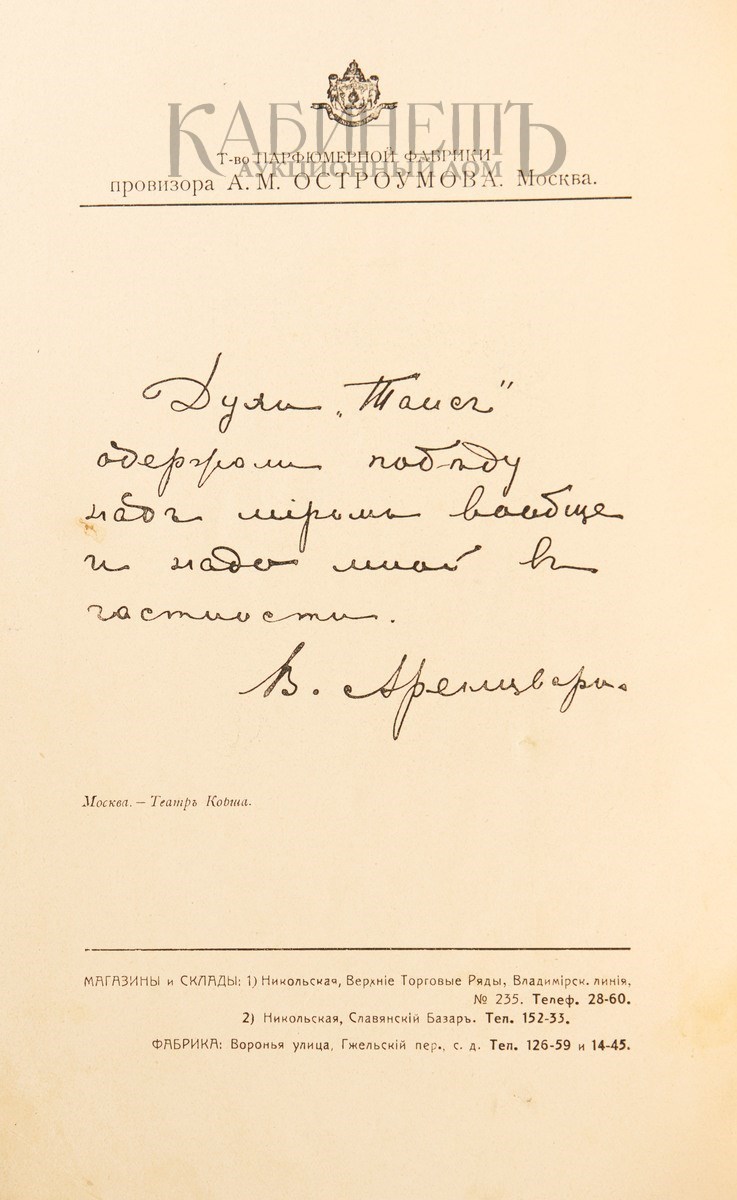 КАБИНЕТЪ
АУКЦИОННЫЙ ДОМ
Т-во ПАРФЮМЕРНОЙ ФАБРИКИ
провизора А. М. ОСТРОУМОВА. Москва.
Духи „Таисъ"
одержали побѣду
надъ мiромъ вообще
и надо мной въ
частности.
В.
Москва. — Театръ Корша.
МАГАЗИНЫ и СКЛАДЫ: 1) Никольская, Верхнiе Торговые Ряды, Владимiрск. линiя,
№ 235. Телеф. 28-60.
2) Никольская, Славянскiй Базаръ. Тел. 152-33.
ФАБРИКА: Воронья улица, Гжельскiй пер., с. д. Тел. 126-59 и 14-45.